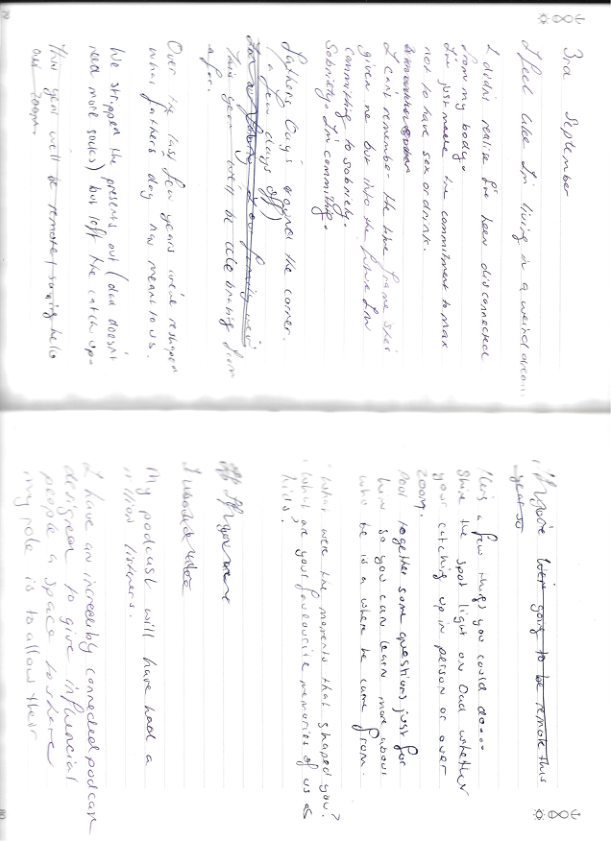 3rd September
I feel like I'm living in a weird dream...
I didn't realise I'd been disconnected
from my body.
I'm just made the commitment to max
not to have sex or drink.
I can remember the time frame she's
given me but into the future I'm
committing to sobriety.
Sobriety. I'm committing.
Fathers Day's around the corner.
(a few days off)
This year we'll be celebrating from
afar.
Over the last few years we've reshaped
what fathers day has meant to us.
We stripped the presents out (dad doesn't
need more socks) but left the catch up.
This year we'll be remote & saying hello
over zoom.
going to be remote this
year so
Here's a few things you could do....
Shine the spot light on Dad whether
your catching up in person or over
zoom.
Pool together some questions just for
him so you can learn more about
who he is & where he came from.
· What were the moments that shaped you?
· What are your favourite memories of us as
kids?
If you were
I would
My podcast will have had a
million listeners.
I have an incredibly connected podcast
designed to give influential
people a space to share
my role is to allow their
79
80